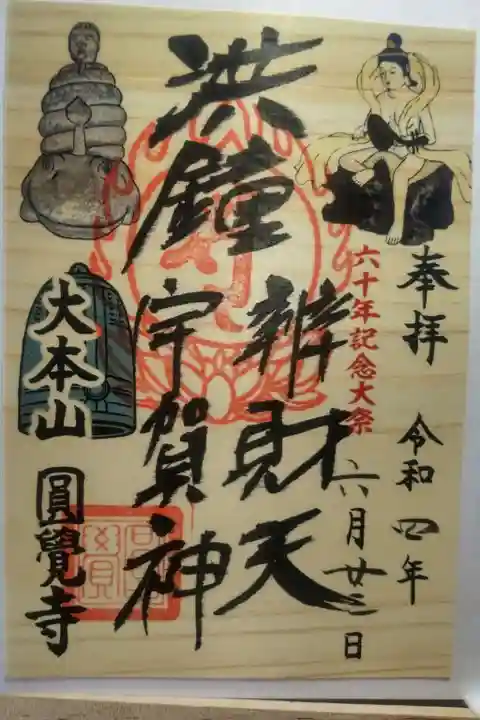 奉拝 令和四年
六月廿三日
六十年記念大祭
洪鐘
辨財天
宇賀神
大本山
圓覺寺